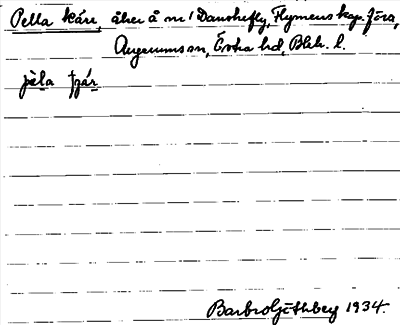 Pella kärr, åker å nr 1 Danskefly, Flymens kap. förs,
Augerums sn, Östra hd, Blek. l.
pèla ꞩár
Barbro Göthberg 1934.